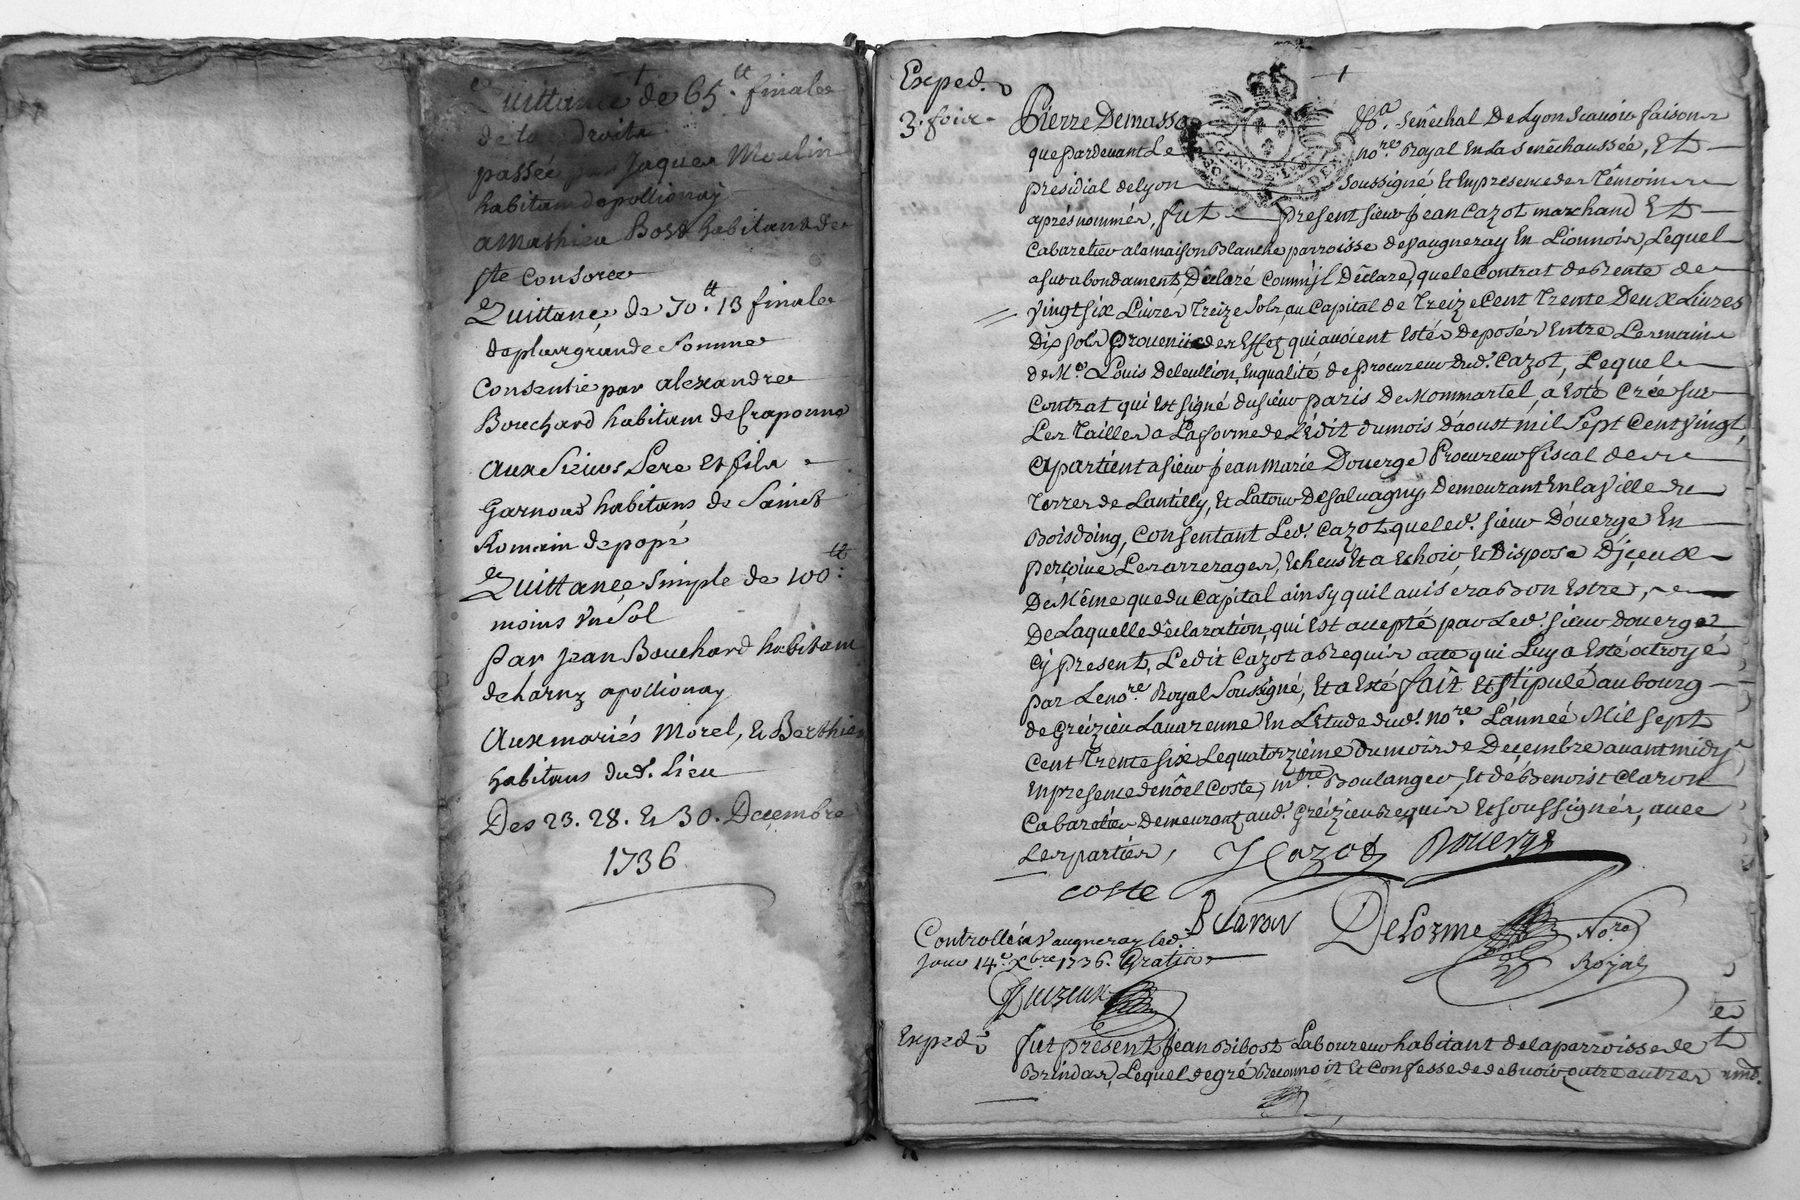 Quittance de 65.tt finale
de to droits
passée par Jaques Moulin
habitan de pollionay
a Mathieu Bost habitant de
Ste Consorce
Quittance de 70.tt 13 finale
de plus grande Somme
Consentie par alexandre
Bouchard habitant de Craponne
aux Sieurs Pere Et fils
Garnoud habitans de Sainct
Romain de popé
Quittance simple de 100.tt
moins Vn Sol
par Jean Bouchard habitant
de harnz apollionay
Aux mariés Morel, Et Berthier
habitans dud. Lieu
Des 23. 28. Et 30. Decembre
1736
Exped.
3. foix
Pierre Demasso Sénéchal De Lyon Scavoir faisons
que pardevant Le nore. Royal En la Sénéchaussée, Et
présidial de Lyon Soussigné Et En presence des Témoins
aprés nommés, fut present sieur Jean Cazot marchand Et
Cabaretier a la maison Blanche parroisse de Vaugneray En Lionnois, Lequel
a surabondament Déclaré Comm'jl Déclare, que le Contrat de Rente de
Vingt Six Livres Treize Sols, au Capital de Treize Cent Trente Deux Livres
Dix sols provenü des Effez qui avoient Estés deposés Entre Les mains
de Me. Louis Deleullion, En qualité de procureur dud. Cazot, Lequel
Contrat qui Est signé du sieur paris de Mommartel, a Esté Créé sur
Les Tailles a La forme de L'édit du mois d'aoust mil Sept Cent Vingt,
apartient a sieur Jean Marie Douerge Procureur fiscal des
Terres de Lantilly, Et Latour De Salvagny, Demeurant En la Ville du
Boisdoing, Consentant Led. Cazot que led. sieur D'ouerge En
perçoive Les arrerages, Echeus Et a Echoir, Et Dispose D'jceux
De Même que du Capital ainsy qu'il avisera bon Estre,
De Laquelle déclaration, qui Est accepté par Led. sieur douerge
Cy present, Ledit Cazot a Requis acte qui Luy a Esté atroyé
par Le nore. Royal Soussigné, Et a Esté fait Et stipulé au bourg
de Gréizieu Lavarenne En L'Etude dud. nore. L'année Mil sept
Cent Trente six Le quatorziéme du mois de Decembre avant midy,
En presence de nöel Coste, mtre. Boulanger, Et de Benoist Claron
Cabaretier Demeurant aud. Gréizieu Requis Et soussignés, avec
Les parties,
J Cazot Douerge
Coste
B Claron Delorme Nore
Royal
Controllé a Vaugneray led.
Jour 14.e xbre 1736. Gratis
Exped.
fut present Jean Bibost Laboureur habitant de la parroisse de
Brindas, Lequel de gré Reconnoit Et Confesse de debvoir outre autres